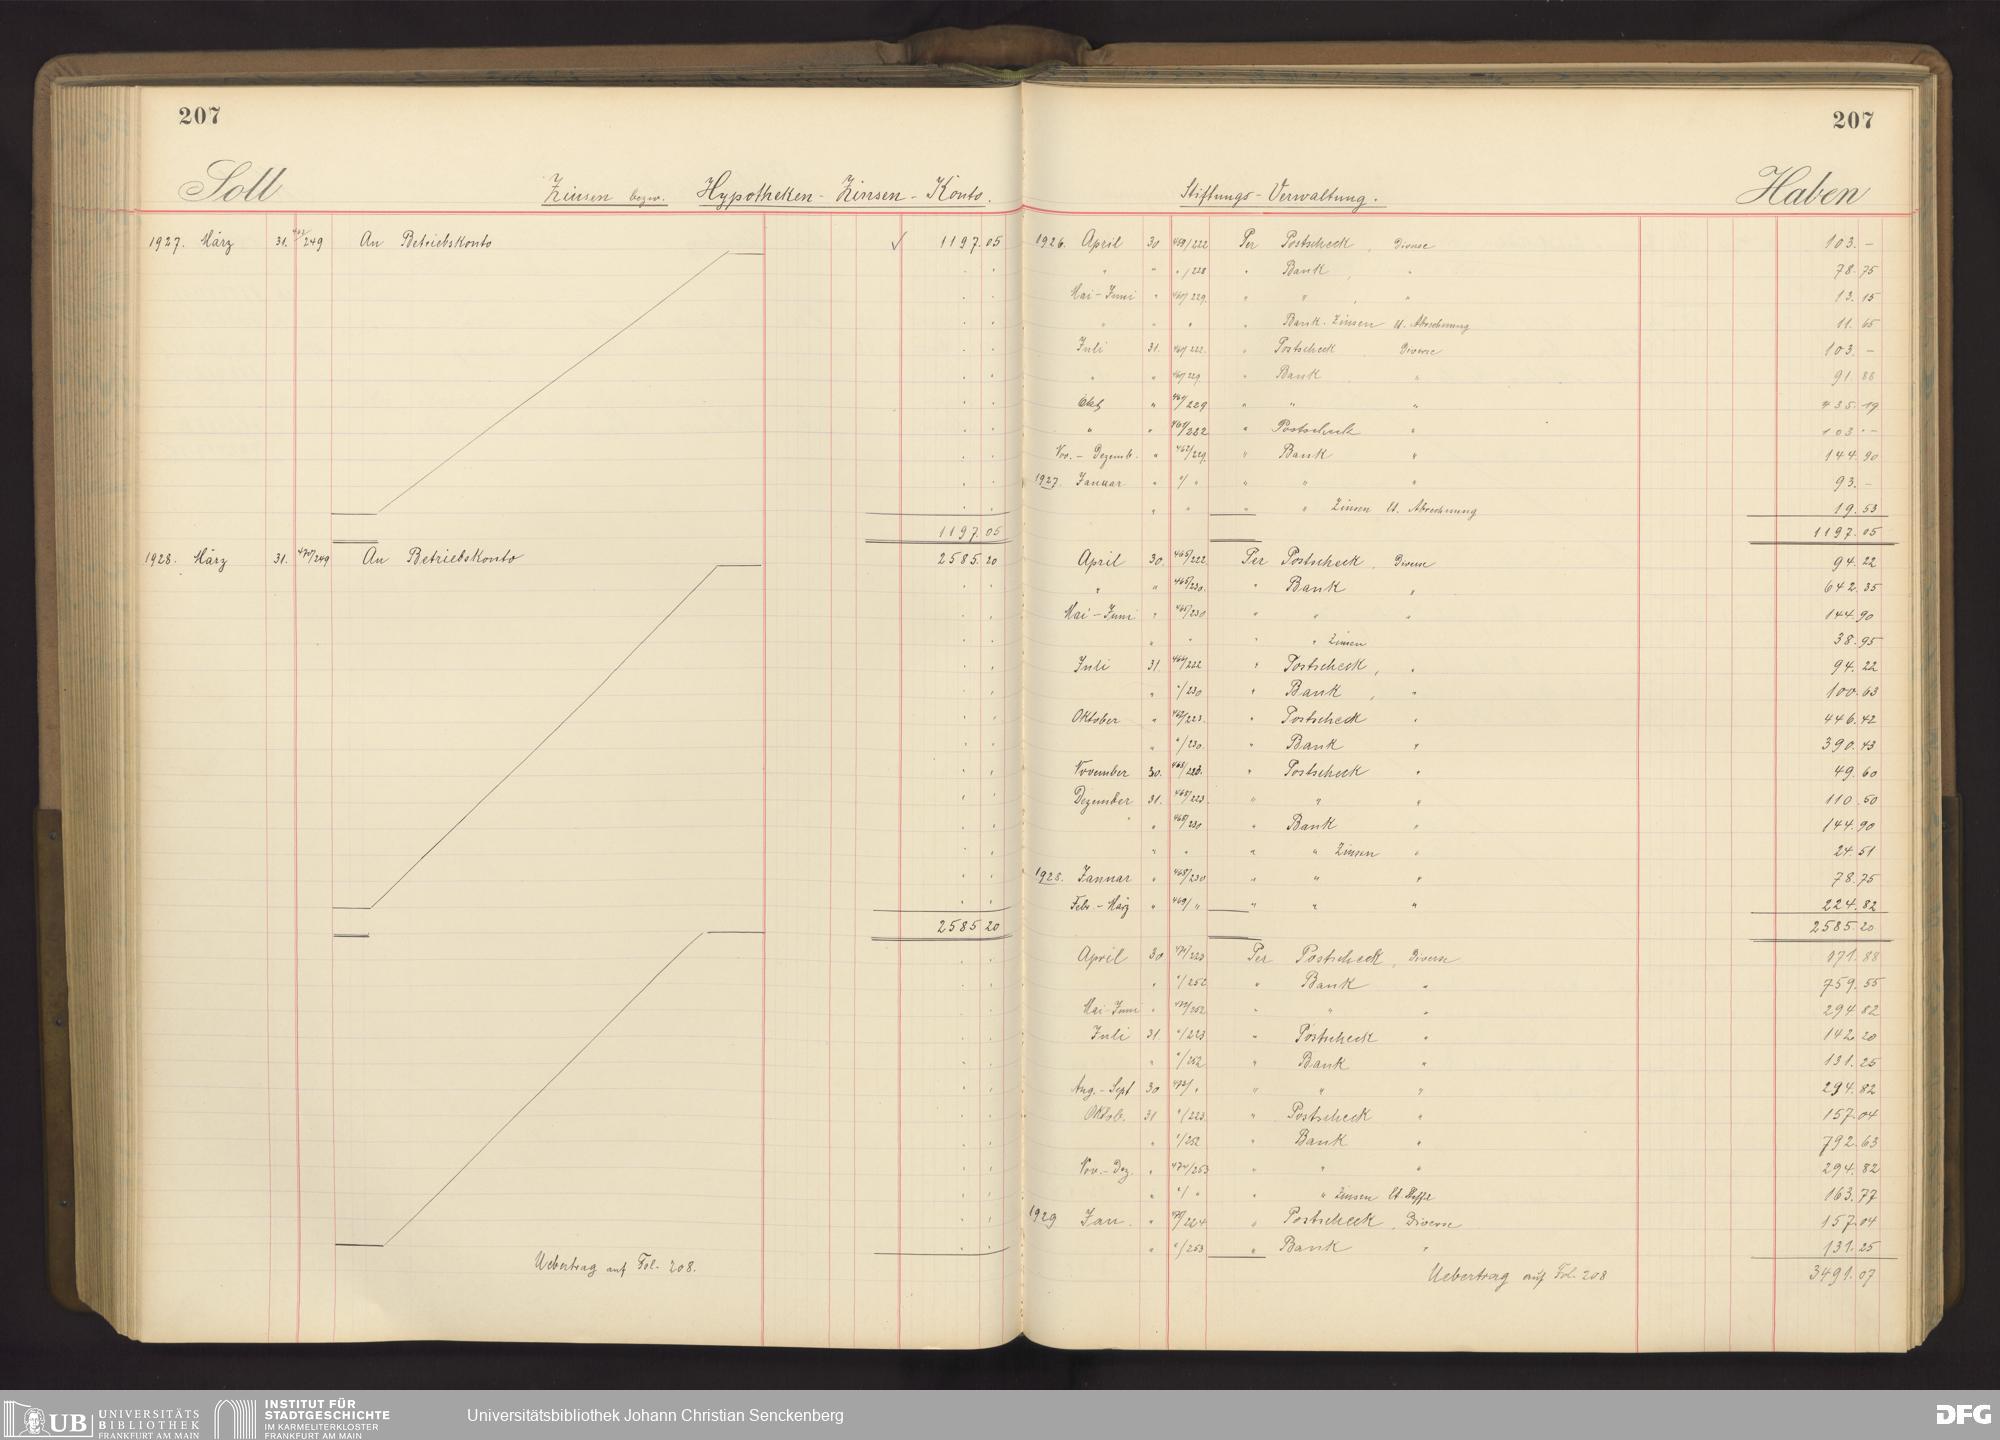 207
Soll Zinsen bezw. Hypotheken - Zinsen - Konto.
1927. März 31. /249 An Betriebskonto √ 1197.05
1197.05
1928. März 31. 470/249 An Betriebskonto 2585.20
2585.20
Uebertrag auf Fol. 208.
207
Stiftungs-Verwaltung. Haben
1926. April 30 459/222 Per Postscheck, Diverse 103.-
" " "/228 " Bank, " 78.75
Mai-Juni " 460/229. " " , " 13.15
" " " " Bank-Zinsen lt. Abrechnung 11.65
Juli 31. 460/222. " Postscheck, Diverse 103.-
" " 460/229 " Bank, " 91.88
Okt. " 461/229 " " " 435.19
" " 461/222 " Postscheck " 103.-
Nov.-Dezemb. " 462/229. " Bank " 144.90
1927. Januar " "/" " " " 93.-
" " " " Zinsen lt. Abrechnung 19.53
1197.05
April 30. 465/222 Per Postscheck, Diverse 94.22
" " 465/230. " Bank " 642.35
Mai-Juni " 465/230 " " " 144.90
" " " " Zinsen 38.95
Juli 31 466/222 " Postscheck, " 94.22
" "/230 " Bank, " 100.63
Oktober " 467/223. " Postscheck " 446.42
" "/230. " Bank " 390.43
November 30. 468/223. " Postscheck " 49.60
Dezember 31. 468/223. " " " 110.50
" " 468/230 " Bank " 144.90
" " " " Zinsen " 24.51
1928. Januar " 468/230 " " " 78.75
Febr.-März " 469/" " " " 224.82
2585.20
April 30 471/223 Per Postscheck, Diverse 171.88
" "/252 " Bank " 759.55
Mai-Juni " 472/252 " " " 294.82
Juli 31 "/223 " Postscheck " 142.20
" "/252 " Bank " 131.25
Aug.-Sept 30 473/" " " " 294.82
Oktob. 31 "/223 " Postscheck " 157.04
" "/252 " Bank " 792.63
Nov.-Dez. " 474/253 " " " 294.82
" "/" " " Zinsen lt. 163.77
1929 Jan. " /224 " Postscheck, Diverse 157.04
" "/253 " Bank " 131.25
Uebertrag auf Fol. 208 3491.07
UB UNIVERSITÄTS
BIBLIOTHEK
FRANKFURT AM MAIN
INSTITUT FÜR
STADTGESCHICHTE
IM KARMELITERKLOSTER
FRANKFURT AM MAIN
Universitätsbibliothek Johann Christian Senckenberg
DFG